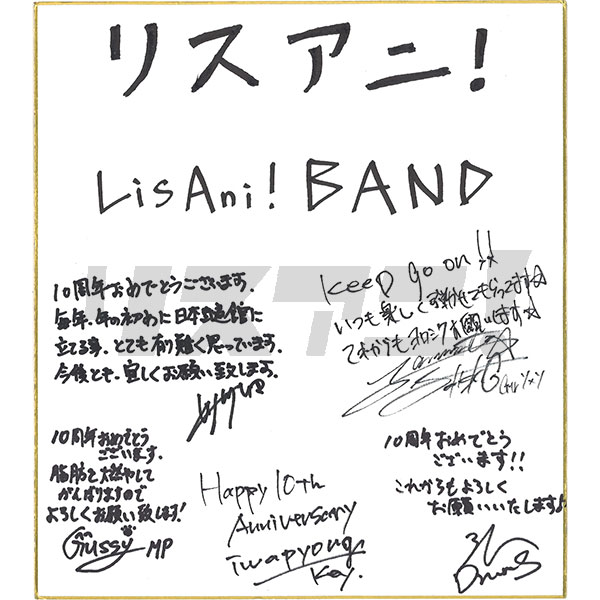 リスアニ!
LisAni! BAND
10周年おめでとうございます。
毎年、年の初めに日本武道館に
立てる事、とても有り難く思っています。
今後とも、宜しくお願い致します。
KeeP go on!!
いつも楽しく弾かせてもらってます☆
これからもヨロシクお願いします☆
10周年おめでとう
ございます。
脂肪を燃やして
がんばりますので
よろしくお願い致します!
Gussy MP
Happy 10th
Anniversary
Iwapyong
Key.
10周年おめでとう
ございます!!
これからもよろしく
お願いいたします♪
Drums
リスアニ!